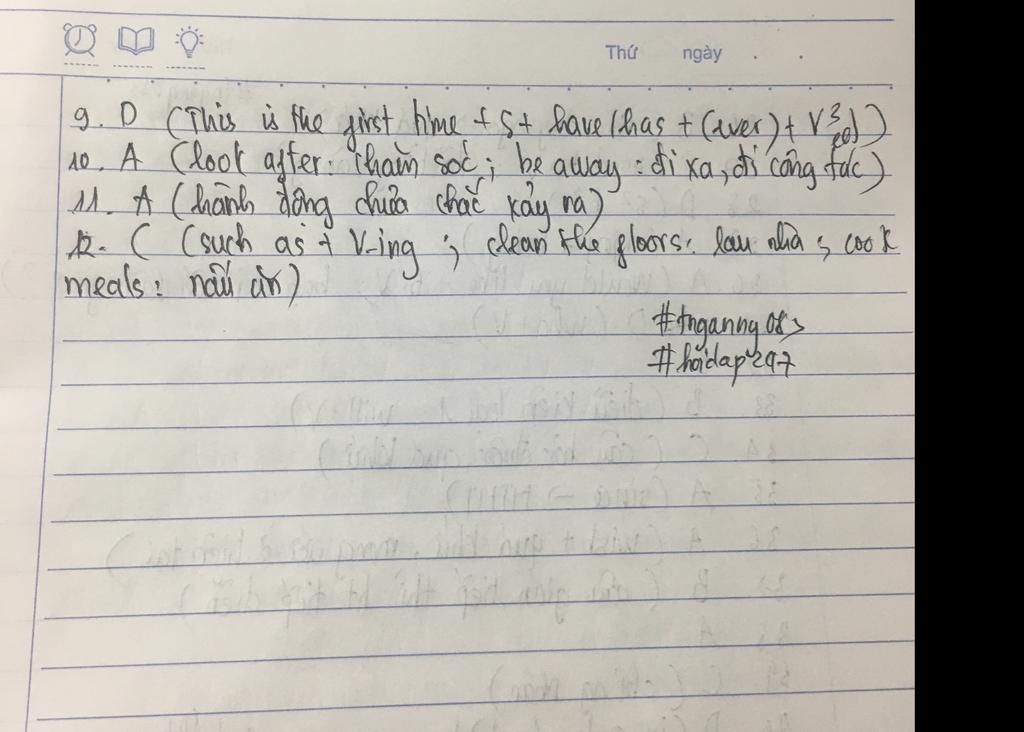 Thứ ngày . .
9. D (This is the first time + S + have/has + (ever) + V3/ed))
10. A (look after: chăm sóc; be away: đi xa, đi công tác)
11. A (hành động chưa chắc xảy ra)
12. C (such as + V-ing ; clean the floors: lau nhà ; cook
meals: nấu ăn)
#tnganng083
#hoidap247